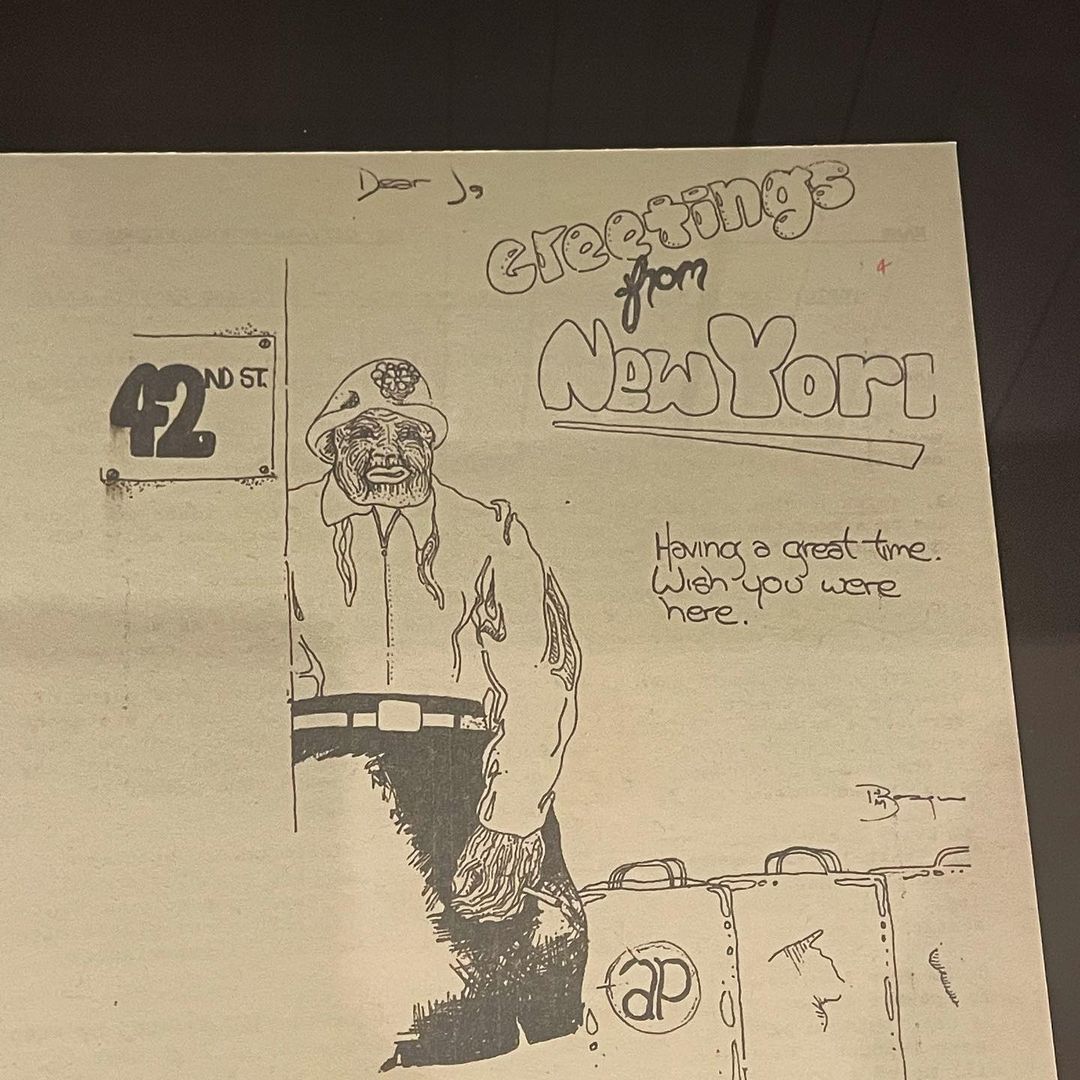 Dear Jo,
Greetings
from
New Yor
42ND ST.
Having a great time.
Wish you were
here.
ap